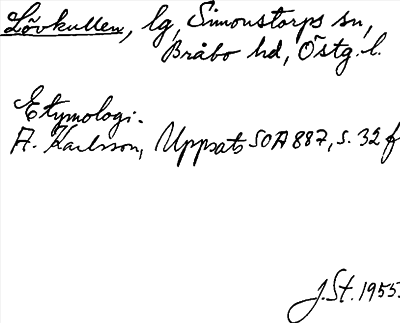 Lövkullen, lg, Simonstorps sn,
Bråbo hd, Östg. l.
Etymologi.
A. Karlsson, Uppsats SOA 887, s. 32 f
J. St. 1955.